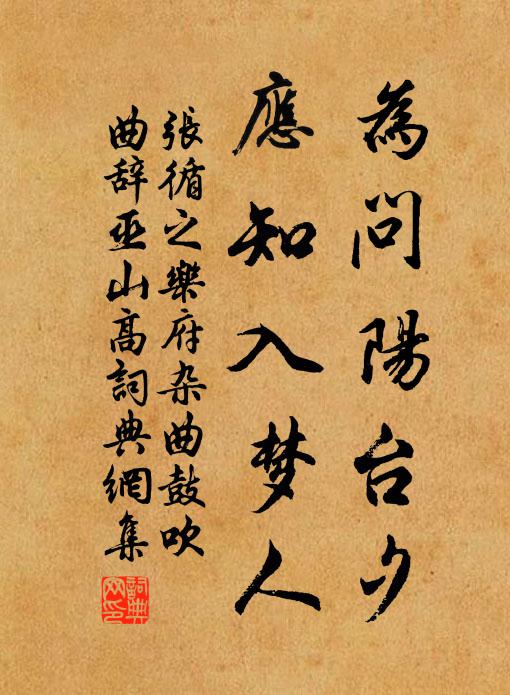 為问陽台夕
應知入梦人
張循之樂府杂曲鼓吹
曲辞巫山高詞典網集